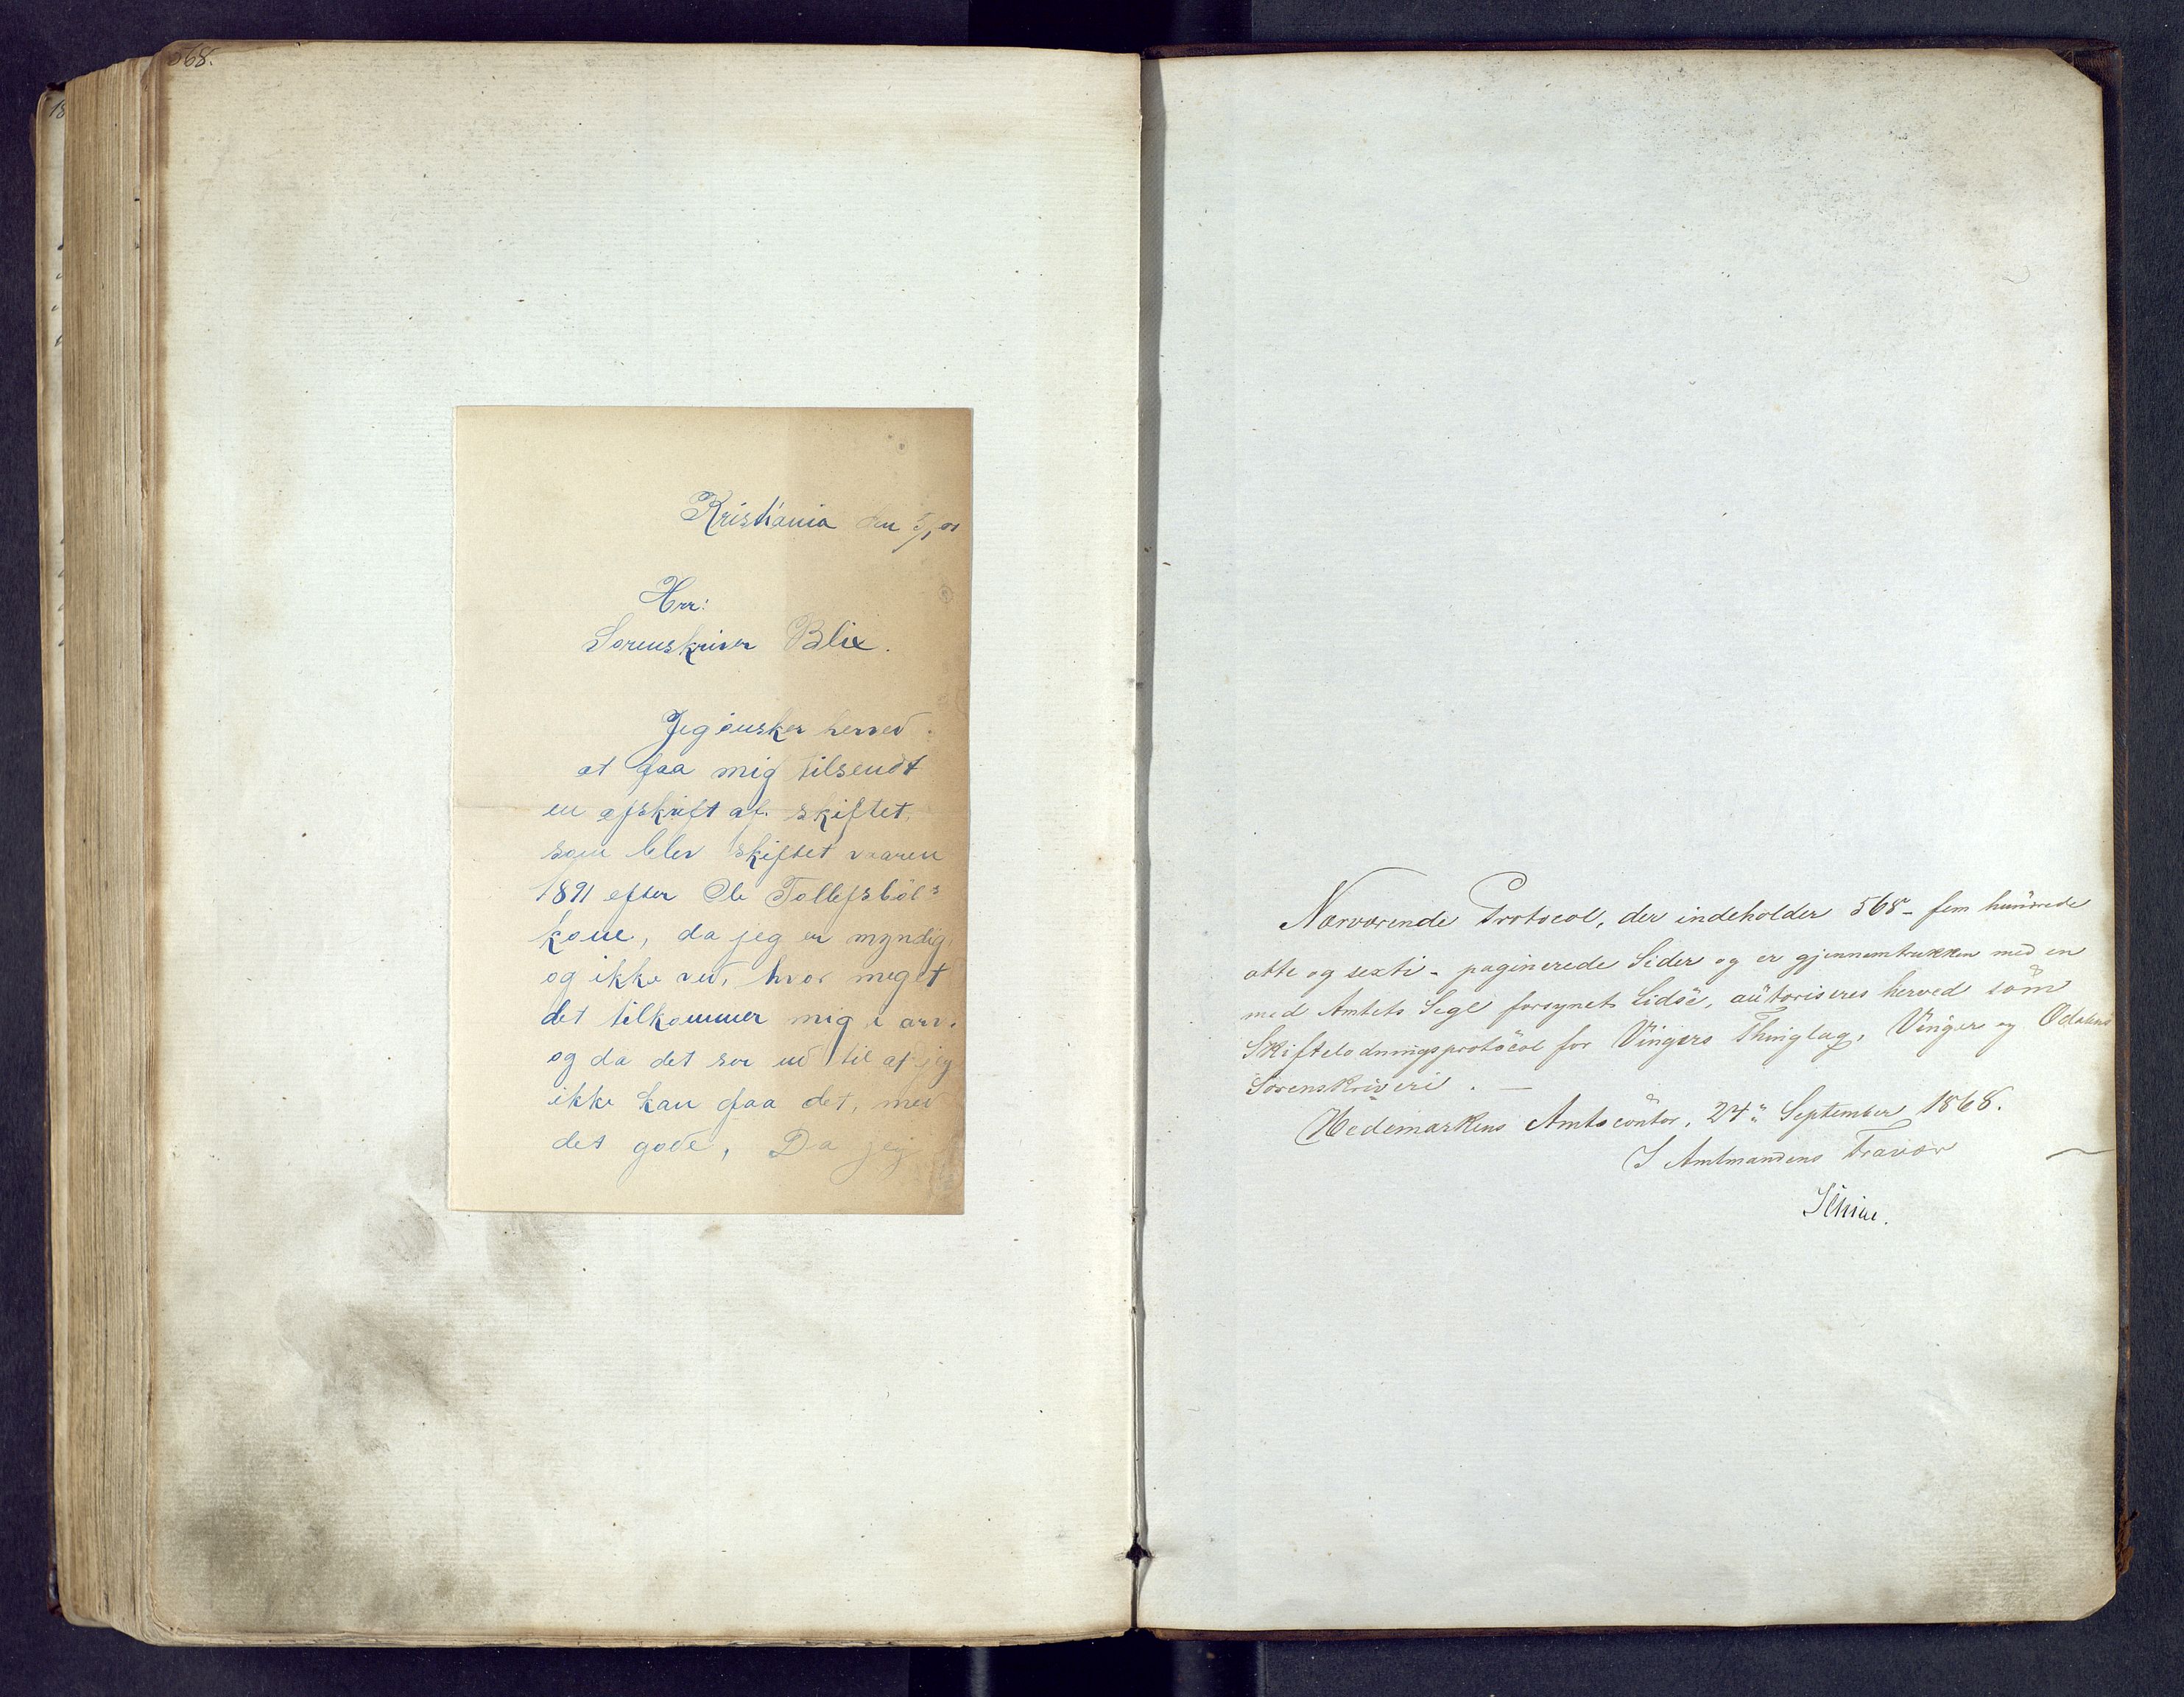 568.
Kristiania den 5/1 01
Herr:
Sorenskriver Blix.
Jeg önsker herved
at faa mig tilsendt
en afskrift af skiftet,
som blev skiftet vaaren
1891 efter Ole Tollefsböl's
kone, da jeg er myndig,
og ikke ved, hvor meget
det tilkommer mig i arv.
og da det ser ud til at jeg
ikke kan faa det, med
det gode, Da jeg
Nærværende Protocol, der indeholder 568 - fem hundrede
otte og sexti - paginerede Sider og er gjennemtrukken med en
med Amtets Segl forsynet Lidse, autoriseres herved som
Skifteludningsprotocol for Vingers Thinglag, Vinger og Odalens
Sorenskriveri. —
Hedemarkens Amtscontor, 24de September 1868.
I Amtmandens Fravær